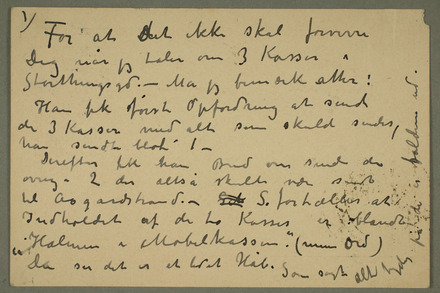 1) For at Det ikke skal forvirre
Dig når jeg taler om 3 Kasser i
Storthingsgd. – Må jeg bemærke atter!
Han fik først Opfordring at sende
de 3 Kasser med alt som skulde sendes,
han sendte blot 1 –
Derefter fik han Bud om sende de
øvrige 2 der altså skulde være sendt
til Asgaardstrand. – S. fortæller at
Indholdet af de to Kasser er blandt
"Halmen i Møbelkassen". (mine Ord)
Da ser det er et lidet Håb.
Som sagt alt tyder
på de er holdem ud.